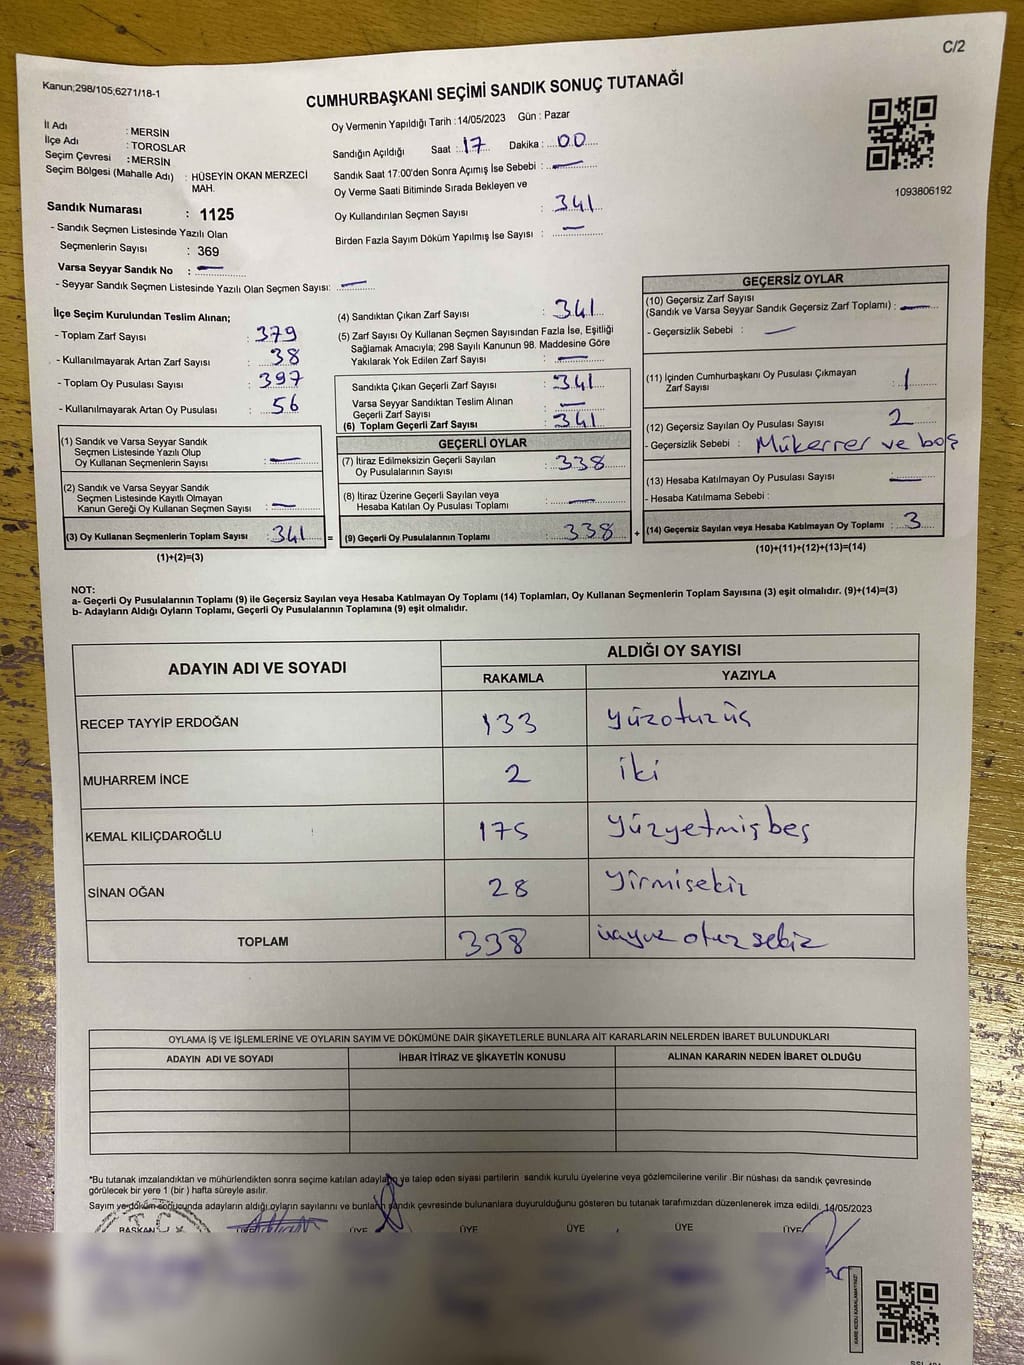 C/2
Kanun;298/105;6271/18-1
CUMHURBAŞKANI SEÇİMİ SANDIK SONUÇ TUTANAĞI
İl Adı : MERSİN
İlçe Adı : TOROSLAR
Seçim Çevresi : MERSİN
Seçim Bölgesi (Mahalle Adı) : HÜSEYİN OKAN MERZECİ
MAH.
Sandık Numarası : 1125
- Sandık Seçmen Listesinde Yazılı Olan
Seçmenlerin Sayısı : 369
Varsa Seyyar Sandık No : —
- Seyyar Sandık Seçmen Listesinde Yazılı Olan Seçmen Sayısı: —
Oy Vermenin Yapıldığı Tarih :14/05/2023 Gün : Pazar
Sandığın Açıldığı Saat : 17 Dakika : 00
Sandık Saat 17:00'den Sonra Açımış İse Sebebi : —
Oy Verme Saati Bitiminde Sırada Bekleyen ve
Oy Kullandırılan Seçmen Sayısı : 341
Birden Fazla Sayım Döküm Yapılmış İse Sayısı : —
1093806192
İlçe Seçim Kurulundan Teslim Alınan;
- Toplam Zarf Sayısı : 379
- Kullanılmayarak Artan Zarf Sayısı : 38
- Toplam Oy Pusulası Sayısı : 397
- Kullanılmayarak Artan Oy Pusulası : 56
(1) Sandık ve Varsa Seyyar Sandık
Seçmen Listesinde Yazılı Olup
Oy Kullanan Seçmenlerin Sayısı : —
(2) Sandık ve Varsa Seyyar Sandık
Seçmen Listesinde Kayıtlı Olmayan
Kanun Gereği Oy Kullanan Seçmen Sayısı : —
(3) Oy Kullanan Seçmenlerin Toplam Sayısı : 341 =
(1)+(2)=(3)
(4) Sandıktan Çıkan Zarf Sayısı : 341
(5) Zarf Sayısı Oy Kullanan Seçmen Sayısından Fazla İse, Eşitliği
Sağlamak Amacıyla; 298 Sayılı Kanunun 98. Maddesine Göre
Yakılarak Yok Edilen Zarf Sayısı : —
Sandıkta Çıkan Geçerli Zarf Sayısı : 341
Varsa Seyyar Sandıktan Teslim Alınan
Geçerli Zarf Sayısı : —
(6) Toplam Geçerli Zarf Sayısı : 341
GEÇERLİ OYLAR
(7) İtiraz Edilmeksizin Geçerli Sayılan
Oy Pusulalarının Sayısı : 338
(8) İtiraz Üzerine Geçerli Sayılan veya
Hesaba Katılan Oy Pusulası Toplamı : —
(9) Geçerli Oy Pusulalarının Toplamı : 338 +
GEÇERSİZ OYLAR
(10) Geçersiz Zarf Sayısı
(Sandık ve Varsa Seyyar Sandık Geçersiz Zarf Toplamı) : —
- Geçersizlik Sebebi : —
(11) İçinden Cumhurbaşkanı Oy Pusulası Çıkmayan
Zarf Sayısı : 1
(12) Geçersiz Sayılan Oy Pusulası Sayısı : 2
- Geçersizlik Sebebi : Mükerrer ve boş
(13) Hesaba Katılmayan Oy Pusulası Sayısı : —
- Hesaba Katılmama Sebebi :
(14) Geçersiz Sayılan veya Hesaba Katılmayan Oy Toplamı : 3
(10)+(11)+(12)+(13)=(14)
NOT:
a- Geçerli Oy Pusulalarının Toplamı (9) ile Geçersiz Sayılan veya Hesaba Katılmayan Oy Toplamı (14) Toplamları, Oy Kullanan Seçmenlerin Toplam Sayısına (3) eşit olmalıdır. (9)+(14)=(3)
b- Adayların Aldığı Oyların Toplamı, Geçerli Oy Pusulalarının Toplamına (9) eşit olmalıdır.
ADAYIN ADI VE SOYADI ALDIĞI OY SAYISI
RAKAMLA YAZIYLA
RECEP TAYYİP ERDOĞAN 133 yüzotuzüç
MUHARREM İNCE 2 iki
KEMAL KILIÇDAROĞLU 175 yüzyetmişbeş
SİNAN OĞAN 28 yirmisekiz
TOPLAM 338 üçyüz otuz sekiz
OYLAMA İŞ VE İŞLEMLERİNE VE OYLARIN SAYIM VE DÖKÜMÜNE DAİR ŞİKAYETLERLE BUNLARA AİT KARARLARIN NELERDEN İBARET BULUNDUKLARI
ADAYIN ADI VE SOYADI İHBAR İTİRAZ VE ŞİKAYETİN KONUSU ALINAN KARARIN NEDEN İBARET OLDUĞU
*Bu tutanak imzalandıktan ve mühürlendikten sonra seçime katılan adaylara ve talep eden siyasi partilerin sandık kurulu üyelerine veya gözlemcilerine verilir .Bir nüshası da sandık çevresinde
görülecek bir yere 1 (bir ) hafta süreyle asılır.
Sayım ve döküm sonucunda adayların aldığı oyların sayılarını ve bunların sandık çevresinde bulunanlara duyurulduğunu gösteren bu tutanak tarafımızdan düzenlenerek imza edildi. 14/05/2023
T.C.
BAŞKAN ÜYE ÜYE ÜYE ÜYE ÜYE ÜYE